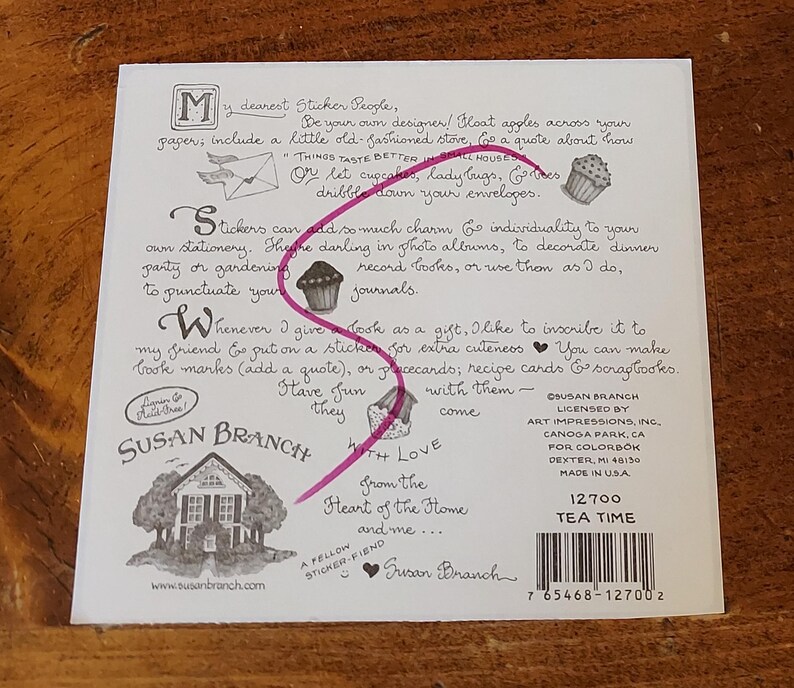 My dearest Sticker People,
Be your own designer! Float apples across your
paper; include a little old-fashioned stove, & a quote about how
"THINGS TASTE BETTER IN SMALL HOUSES."
Or let cupcakes, ladybugs, & bees
dribble down your envelopes.
Stickers can add so much charm & individuality to your
own stationery. They're darling in photo albums, to decorate dinner
party or gardening record books, or use them as I do,
to punctuate your journals.
Whenever I give a book as a gift, I like to inscribe it to
my friend & put on a sticker for extra cuteness ♥ You can make
book marks (add a quote), or placecards; recipe cards & scrapbooks.
Have fun with them ~
they come
WITH LOVE
from the
Heart of the Home
and me . . .
A FELLOW
STICKER-FIEND
♥ Susan Branch
Lignin &
Acid-Free!
SUSAN BRANCH
www.susanbranch.com
©SUSAN BRANCH
LICENSED BY
ART IMPRESSIONS, INC.,
CANOGA PARK, CA
FOR COLORBÖK
DEXTER, MI 48130
MADE IN U.S.A.
12700
TEA TIME
7 65468-12700 2